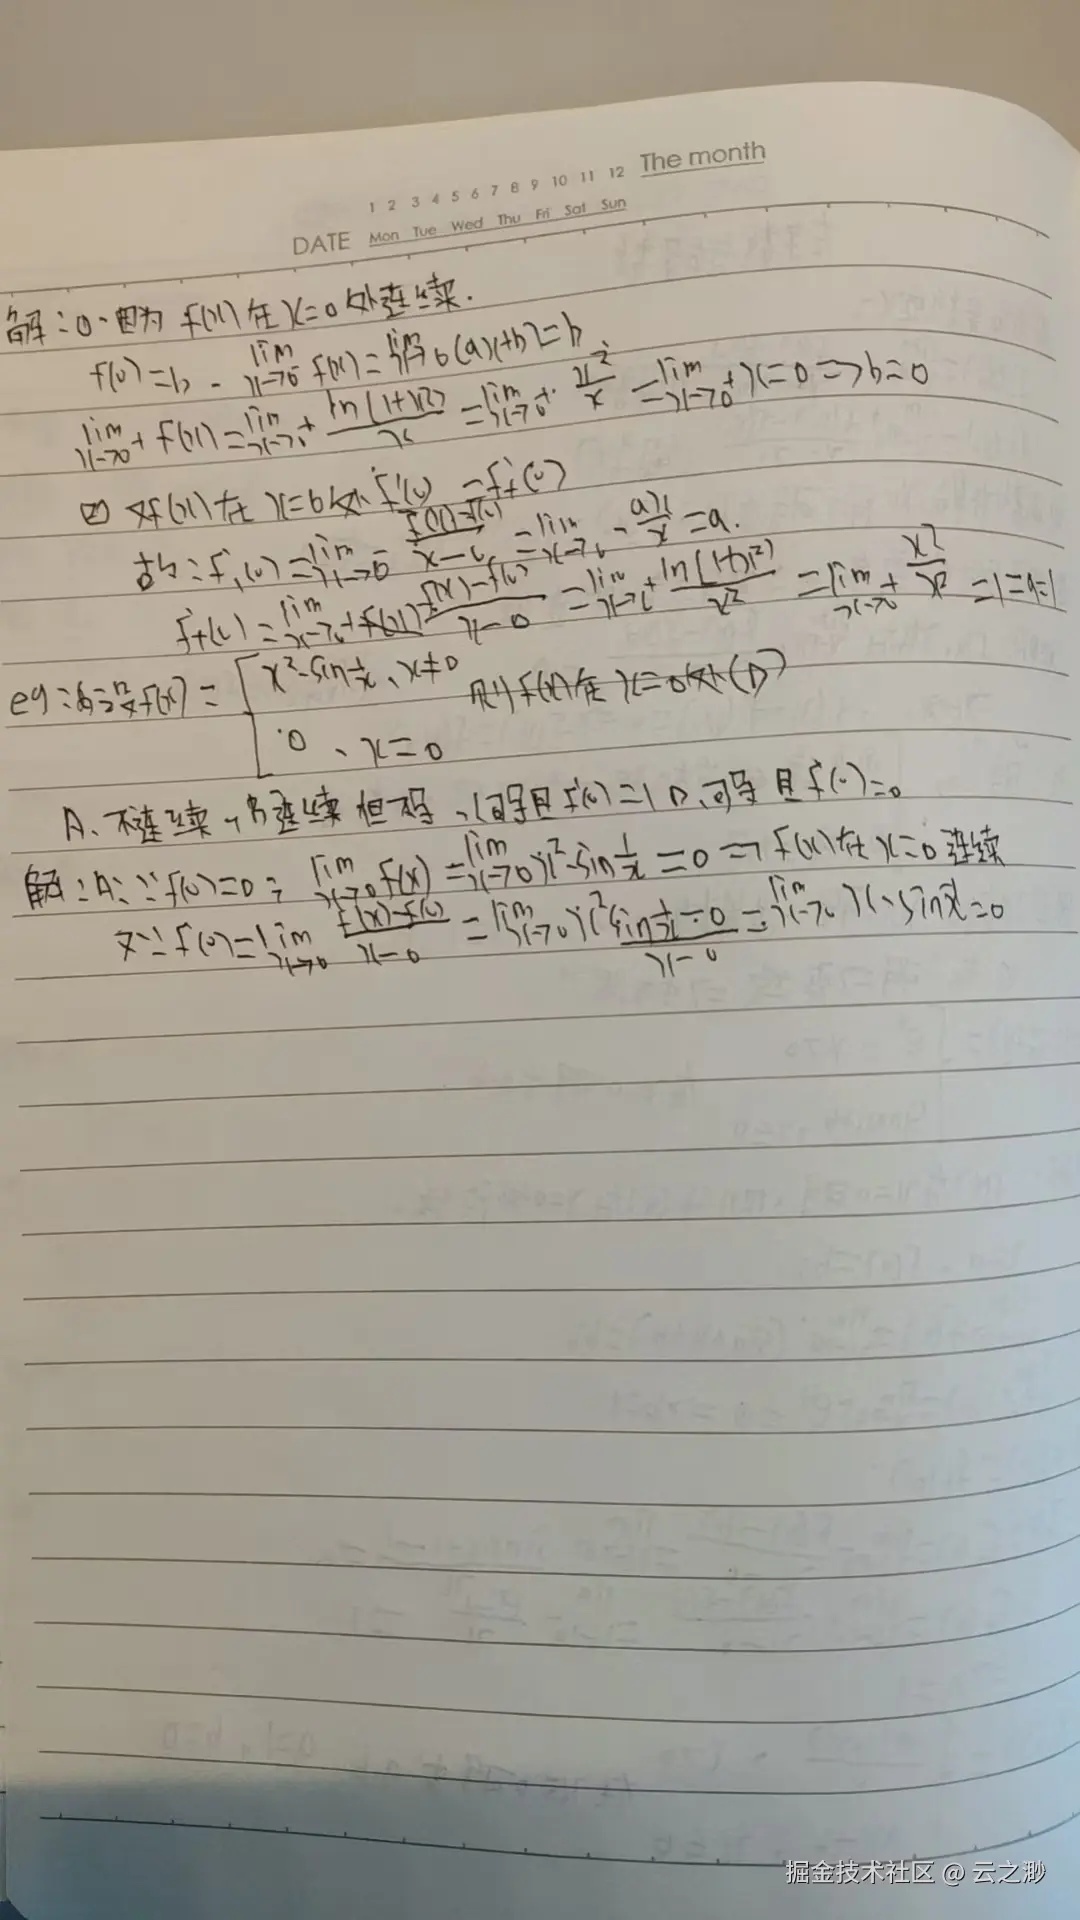 The month
1 2 3 4 5 6 7 8 9 10 11 12
DATE Mon Tue Wed Thu Fri Sat Sun
解:①. 因为 f(x) 在 x=0 处连续.
f(0)=b. lim x→0⁻ f(x)=lim x→0⁻ (ax+b)=b
lim x→0⁺ f(x)=lim x→0⁺ ln(1+x²)/x =lim x→0⁺ x²/x =lim x→0⁺ x=0 ⇒ b=0
② 又f(x) 在 x=0处 f'₋(0)=f'₊(0)
故:f'₋(0)=lim x→0⁻ f(x)-f(0)/x-0 =lim x→0⁻ ax/x =a.
f'₊(0)=lim x→0⁺ f(x)-f(0)/x-0 =lim x→0⁺ ln(1+x²)/x² =lim x→0⁺ x²/x² =1=a=1
eg:设f(x)={ x²·sin 1/x、x≠0 则f(x)在x=0处(D)
0 、x=0
A、不连续, B连续但不导、C可导且f'(0)=1 D、可导且f'(0)=0
解:A:∵f(0)=0; lim x→0 f(x)=lim x→0 x²·sin 1/x =0 ⇒ f(x)在x=0连续
又∵f'(0)=lim x→0 f(x)-f(0)/x-0 =lim x→0 x²sin 1/x -0/x-0 =lim x→0 x·sin 1/x=0
掘金技术社区 @ 云之渺